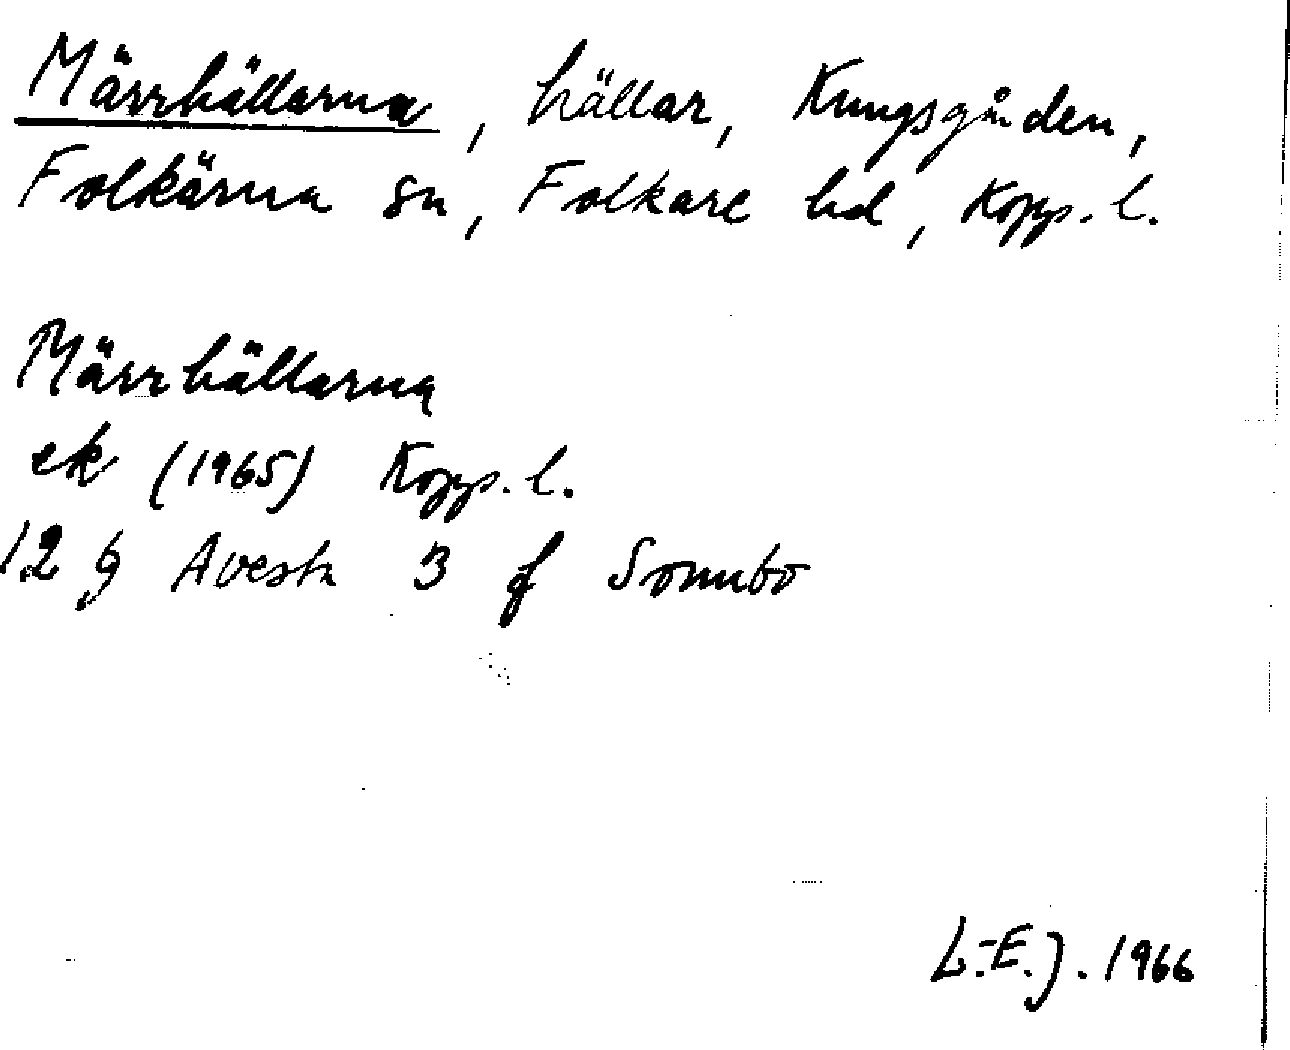 Märrhällarna, hällar, Kungsgården,
Folkärna sn, Folkare hd, Kopp. l.
Märrhällarna
ek (1965) Kopp. l.
12 g Avesta 3 f Sonnbo
L.-E. J. 1966